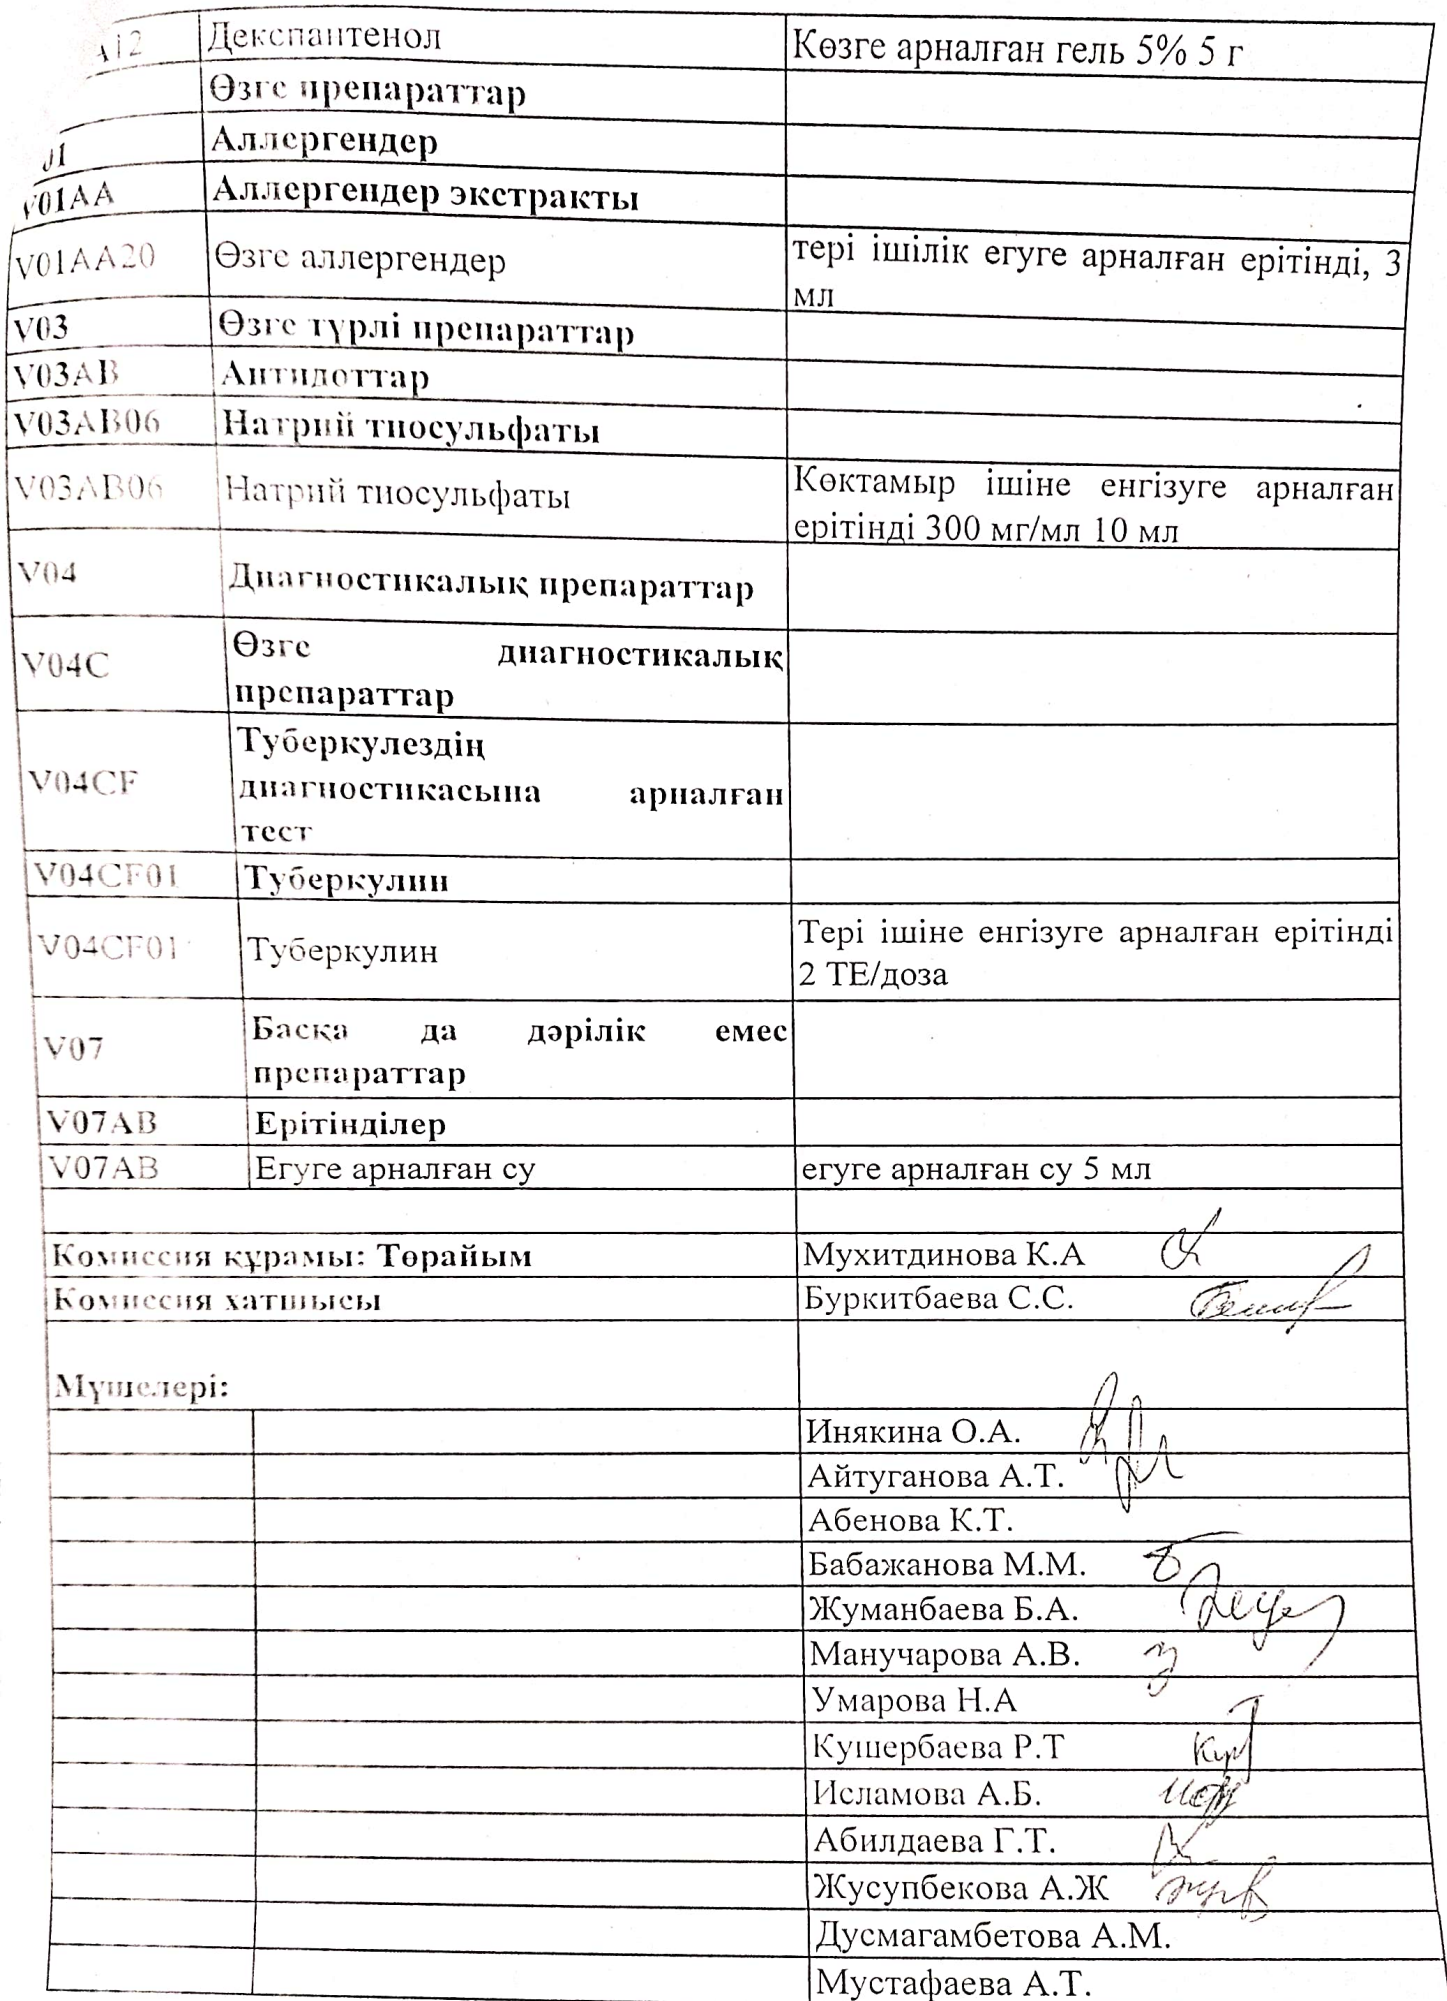 Декспантенол Көзге арналған гель 5% 5 г
Өзге препараттар
Аллергендер
V01AA Аллергендер экстракты
V01AA20 Өзге аллергендер тері ішілік егуге арналған ерітінді, 3
мл
V03 Өзге түрлі препараттар
V03AB Антидоттар
V03AB06 Натрий тиосульфаты
V03AB06 Натрий тиосульфаты Көктамыр ішіне енгізуге арналған
ерітінді 300 мг/мл 10 мл
V04 Диагностикалық препараттар
V04C Өзге диагностикалық
препараттар
Туберкулездің
V04CF диагностикасына арналған
тест
V04CF01 Туберкулин
V04CF01 Туберкулин Тері ішіне енгізуге арналған ерітінді
2 ТЕ/доза
V07 Басқа да дәрілік емес
препараттар
V07AB Ерітінділер
V07AB Егуге арналған су егуге арналған су 5 мл
Комиссия құрамы: Төрайым Мухитдинова К.А
Комиссия хатшысы Буркитбаева С.С.
Мүшелері:
Инякина О.А.
Айтуганова А.Т.
Абенова К.Т.
Бабажанова М.М.
Жуманбаева Б.А.
Манучарова А.В.
Умарова Н.А
Кушербаева Р.Т
Исламова А.Б.
Абилдаева Г.Т.
Жусупбекова А.Ж
Дусмагамбетова А.М.
Мустафаева А.Т.